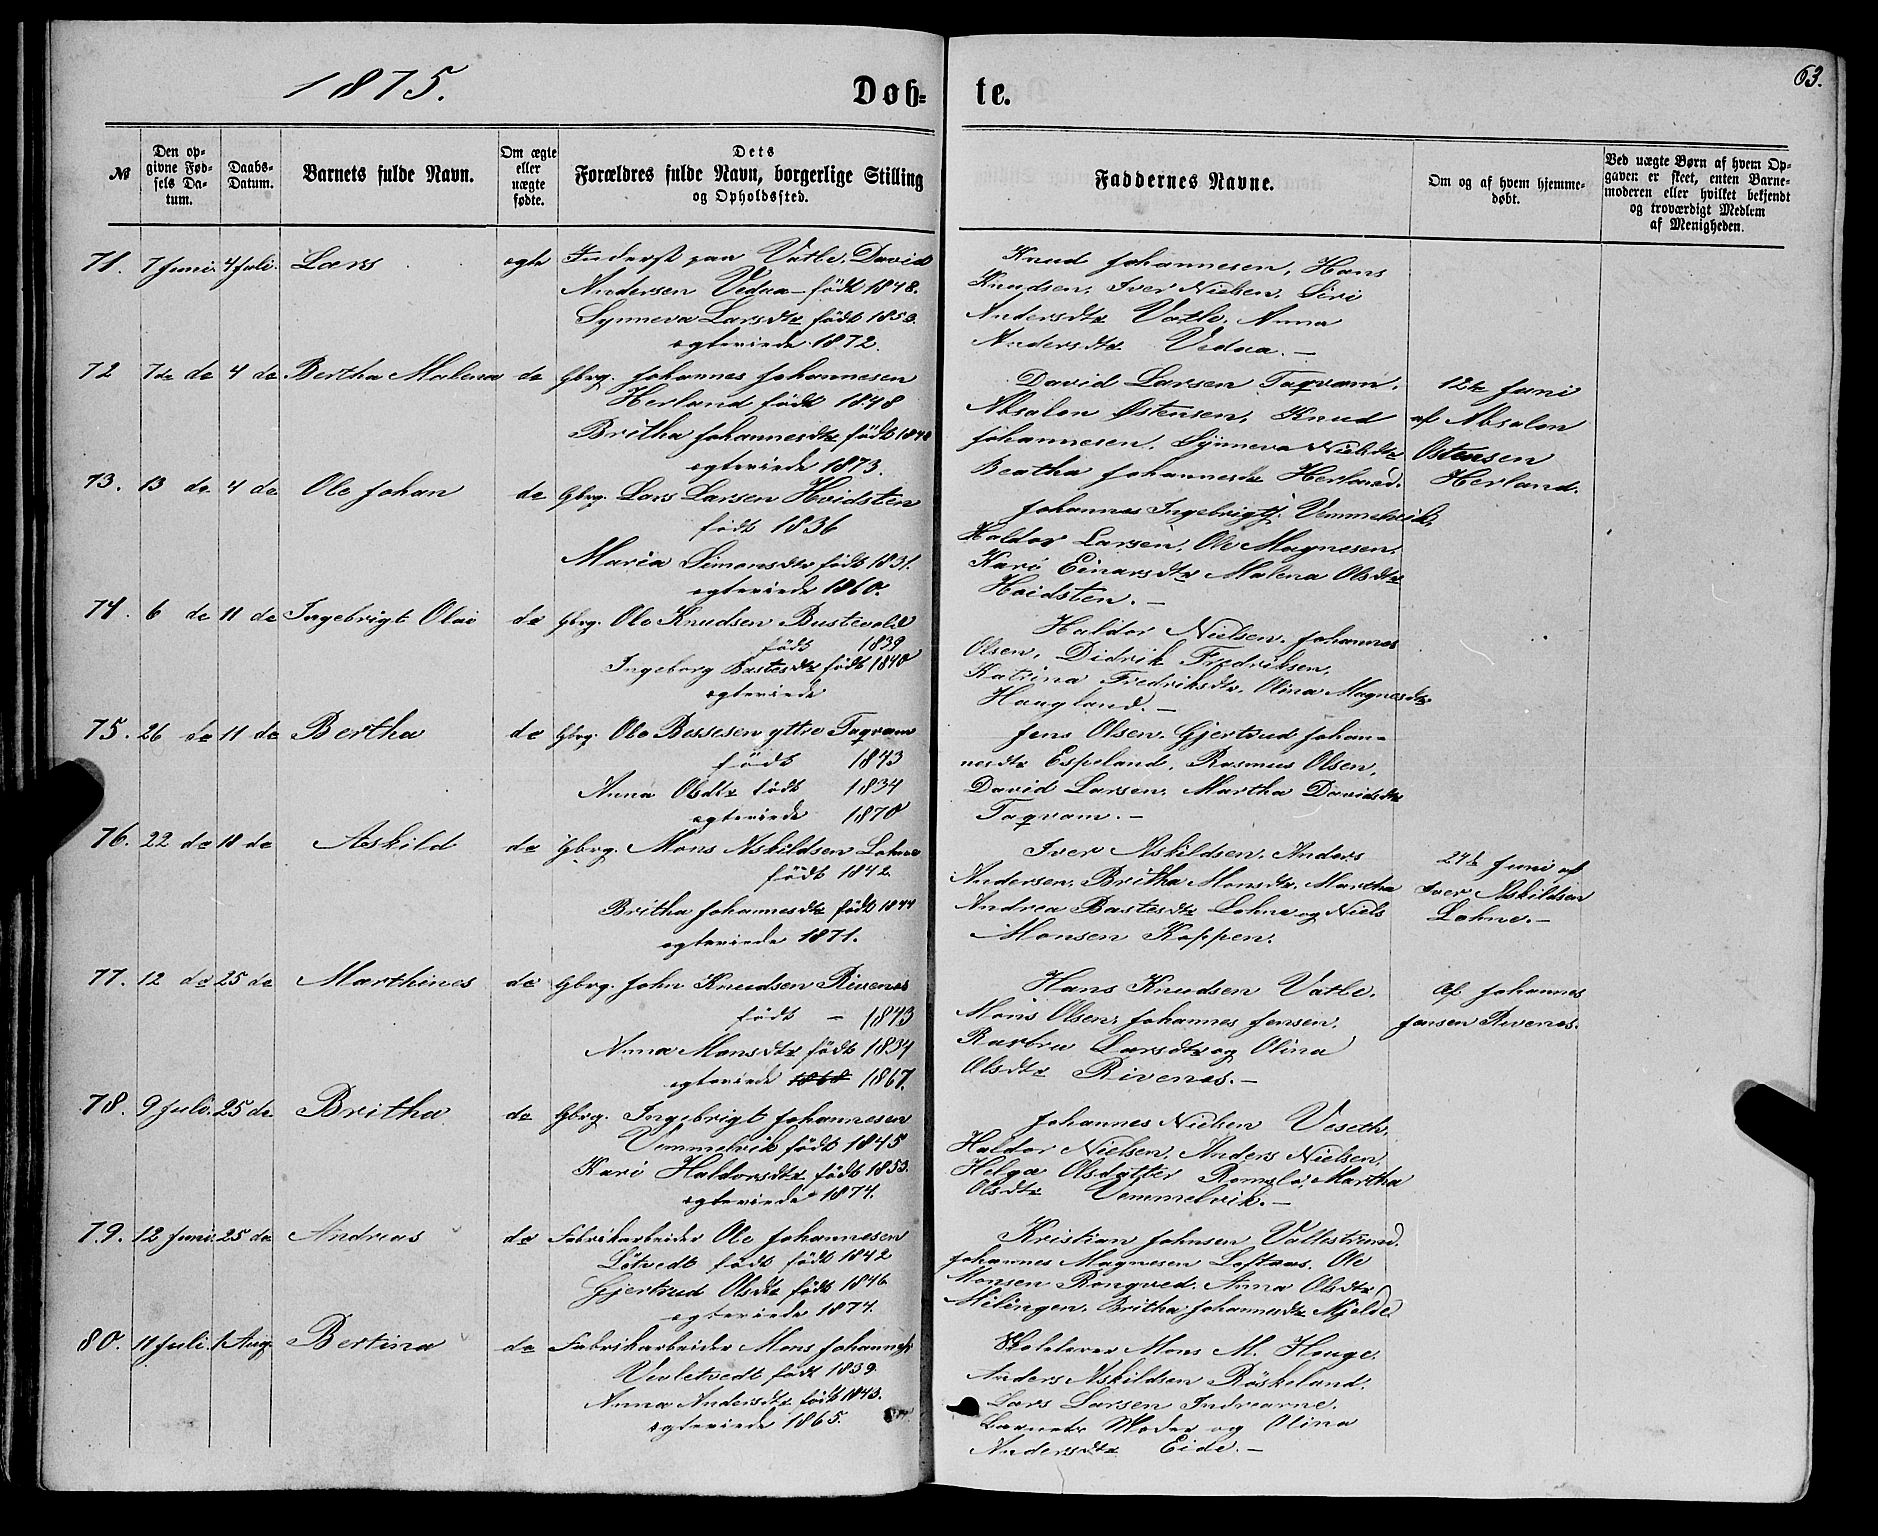 1875.
Døb- te.
63.
№
Den op-
givne Fød-
sels Da-
tum.
Daabs-
Datum.
Barnets fulde Navn.
Om ægte
eller
uægte
fødte.
Dets
Forældres fulde Navn, borgerlige Stilling
og Opholdssted.
Faddernes Navne.
Om og af hvem hjemme-
døbt.
Ved uægte Børn af hvem Op-
gaven er skeet, enten Barne-
moderen eller hvilket bekjendt
og troværdigt Medlem
af Menigheden.
71. 7 Juni. 4 Juli. Lars ægte Inderst paa Vatle, David
Andersen Vedaa - født 1848.
Synneva Larsdtr født 1853.
ægteviede 1872.
Knud Johannesen, Hans
Knudsen, Iver Nielsen, Siri
Andersdtr Vatle, Anna
Andersdtr Vedaa. -
72 7de do 4 do Bertha Malena do Gbrg. Johannes Johannesen
Herland født 1848
Britha Johannesdtr født
ægteviede 1873.
David Larsen Taqvam,
Absalon Østensen, Knud
Johannesen, Synneva Nielsdtr
Beatha Johannesdtr Herland.
12te Juni
af Absalon
Østensen
Herland.
73. 13 do 4 do Ole Johan do Gbrg. Lars Larsen Hvidsten
født 1836
Maria Simonsdtr født 1831.
ægteviede 1860.
Johannes Ingebrigtj. Vemmelvik,
Haldor Larsen, Ole Magnesen,
Kari Einarsdtr Malena Olsdtr
Hvidsten. -
74. 6 do 11 do Ingebrigt Olai do Gbrg. Ole Knudsen Bustevold
født 1839
Ingeborg Bastesdtr født 1840
ægteviede
Haldor Nielsen, Johannes
Olsen, Didrik Fredriksen,
Katrina Fredriksdtr, Olina Magnesdtr
Haugland. -
75. 26 do 11 do Bertha do Gbrg. Ole Bessesen yttre Taqvam
født 1843
Anna Olsdtr født 1834
ægteviede 1870
Jens Olsen, Gjertrud Johan-
nesdtr Espeland, Rasmus Olsen,
David Larsen, Martha Davidsdtr
Taqvam. -
76. 22 do 18 do Askild do Gbrg. Mons Askildsen Lohne
født 1842
Britha Johannesdtr født 1844
ægteviede 1871.
Iver Askildsen, Anders
Andersen, Britha Monsdtr, Martha
Andrea Bastesdtr Lohne og Niels
Monsen Koppen.
24de Juni af
Iver Askildsen
Lohne. -
77. 12 do 25 do Marthines do Gbrg. John Knudsen Rivenes
født - 1843
Anna Monsdtr født 1834
ægteviede 1868 1867.
Hans Knudsen Vatle,
Mons Olsen, Johannes Jensen,
Barbru Larsdtr og Olina
Olsdtr Rivenes. -
af Johannes
Jensen Rivenes.
78. 9 Juli. 25 do Britha do Gbrg. Ingebrigt Johannesen
Vemmelvik født 1845
Kari Haldorsdtr født 1853.
ægteviede 1874.
Johannes Nielsen Veseth,
Haldor Nielsen, Anders Nielsen,
Helga Olsdatter Romslo, Martha
Olsdtr Vemmelvik. -
79. 12 Juni 25 do Andreas do Fabrikarbeider Ole Johannesen
Løtvedt født født 1842
Gjertrud Olsdtr født 1846
ægteviede 1874.
Kristian Johnsen Vallestrand.
Johannes Magnesen Loftaas, Ole
Monsen Rongved, Anna Olsdtr
Mitingen, Britha Johannesdtr Mjelde
80. 11 Juli. 1 Aug. Bertina do Fabrikarbeider Mons Johannes
Veoletvedt født 1839
Anna Andersdtr født 1843.
ægteviede 1865.
Skolelærer Mons M. Houge.
Anders Askildsen Røskeland,
Lars Larsen Indrearne,
Barnets Moder og Olina
Andersdtr Eide. -